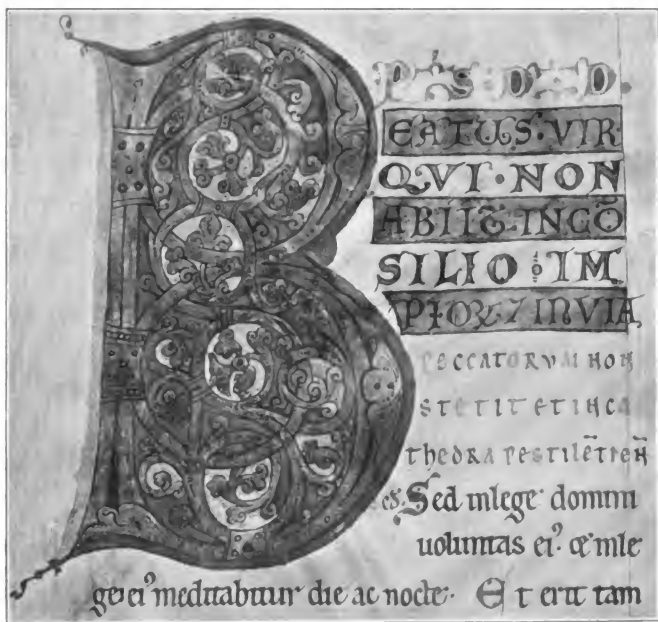 PS DD.
BEATUS·VIR
QVI·NON
ABIIT̄·INCŌ
SILIO IM
PIOꝝ ⁊ INVIA
PECCATORVM NON
STETIT ET INCA
THEDRA PESTILĒTIE
Sed inlege domini
uoluntas ei᷒· & inle
ge ei᷒ meditabitur die ac nocte· Et erit tam